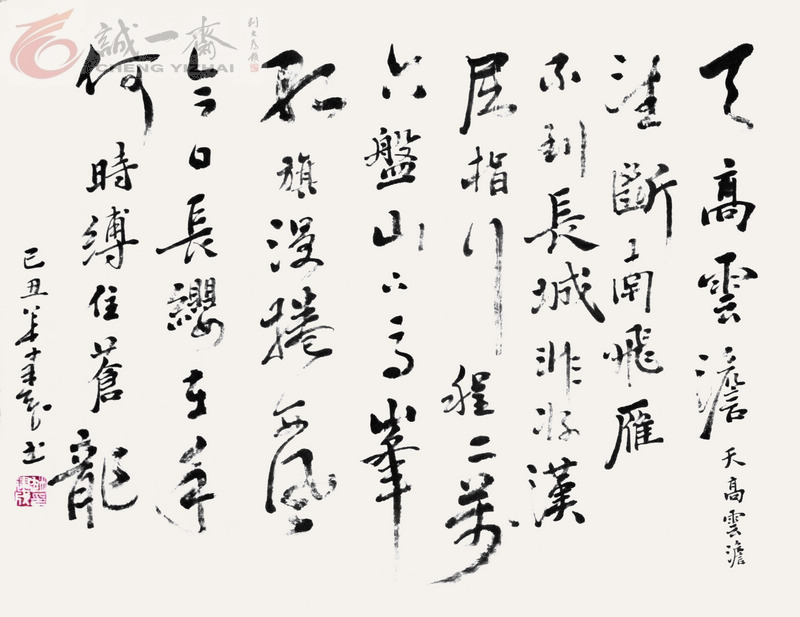 天高雲澹
天高雲澹
望斷南飛雁
不到長城非好漢
屈指行程二萬
六盤山上高峯
紅旗漫捲西風
今日長纓在手
何時縛住蒼龍
己丑 書
誠一齋
CHENG YIZHAI